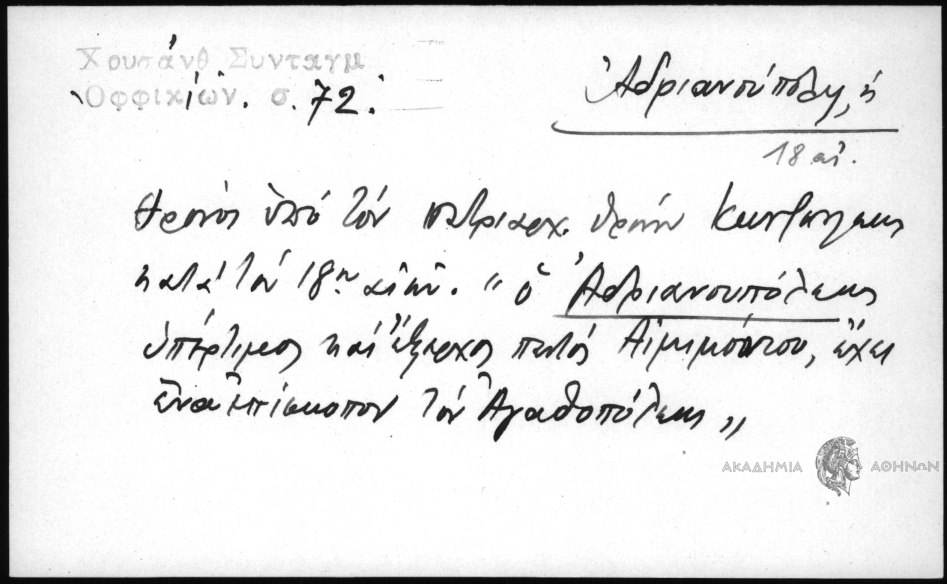 Χρυσάνθ Συνταγμ
Ὀφφικίων. σ. 72.
Ἀδριανούπολη, ἡ
18 αἰ.
θρόνος ὑπό τόν πατριαρχ. θρόνον Κων/πόλεως
κατά τόν 18ον αἰῶν. "ὁ Ἀδριανουπόλεως
ὑπέρτιμος καί ἔξαρχος παντός Αἱμιμόντου, ἔχει
ἕνα ἐπίσκοπον τόν Ἀγαθοπόλεως"
ΑΚΑΔΗΜΙΑ ΑΘΗΝΩΝ